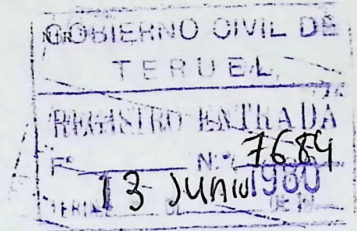 GOBIERNO CIVIL DE
TERUEL
REGISTRO ENTRADA
F.º N.º 7684
13 Junio 1980
TERUEL DE DE 19